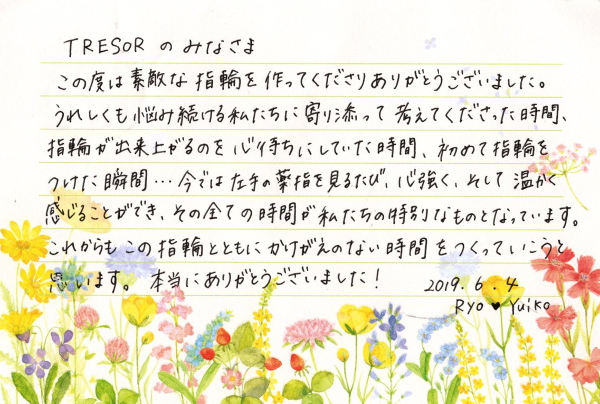 TRESORのみなさま
この度は素敵な指輪を作ってくださりありがとうございました。
うれしくも悩み続ける私たちに寄り添って考えてくださった時間、
指輪が出来上がるのを心待ちにしていた時間、初めて指輪を
つけた瞬間…今では左手の薬指を見るたび、心強く、そして温かく
感じることができ、その全ての時間が私たちの特別なものとなっています。
これからもこの指輪とともにかけがえのない時間をつくっていこうと
思います。本当にありがとうございました！
2019.6.4
Ryo ♥ Yuiko